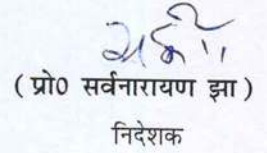 ( प्रो0 सर्वनारायण झा )
निदेशक